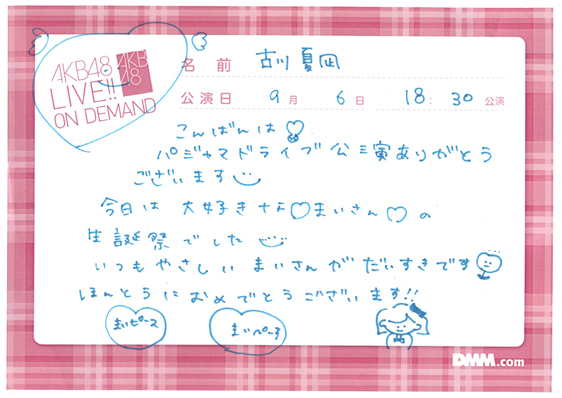 AKB48
LIVE!!
ON DEMAND
AKB
48
名前 古川夏凪
公演日 9月 6日 18:30公演
こんばんは
パジャマドライブ公演ありがとう
ございます
今日は 大好きな♡まいさん♡の
生誕祭でした
いつもやさしい まいさんが だいすきです
ほんとうにおめでとうございます!!
まいピース
DMM.com